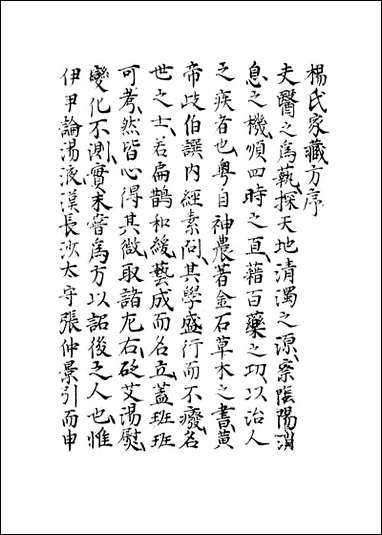 楊氏家藏方序
夫醫之為藝探天地清濁之源察陰陽消
息之機順四時之宜藉百藥之功以治人
之疾者也粵自神農著金石草木之書黃
帝歧伯譔內經素問其學盛行而不癈名
世之士若扁鵲和緩藝成而名立蓋班班
可考然皆心得其微取諸左右砭艾湯熨
變化不測實未嘗為方以詔後之人也惟
伊尹論湯液漢長沙太守張仲景引而申